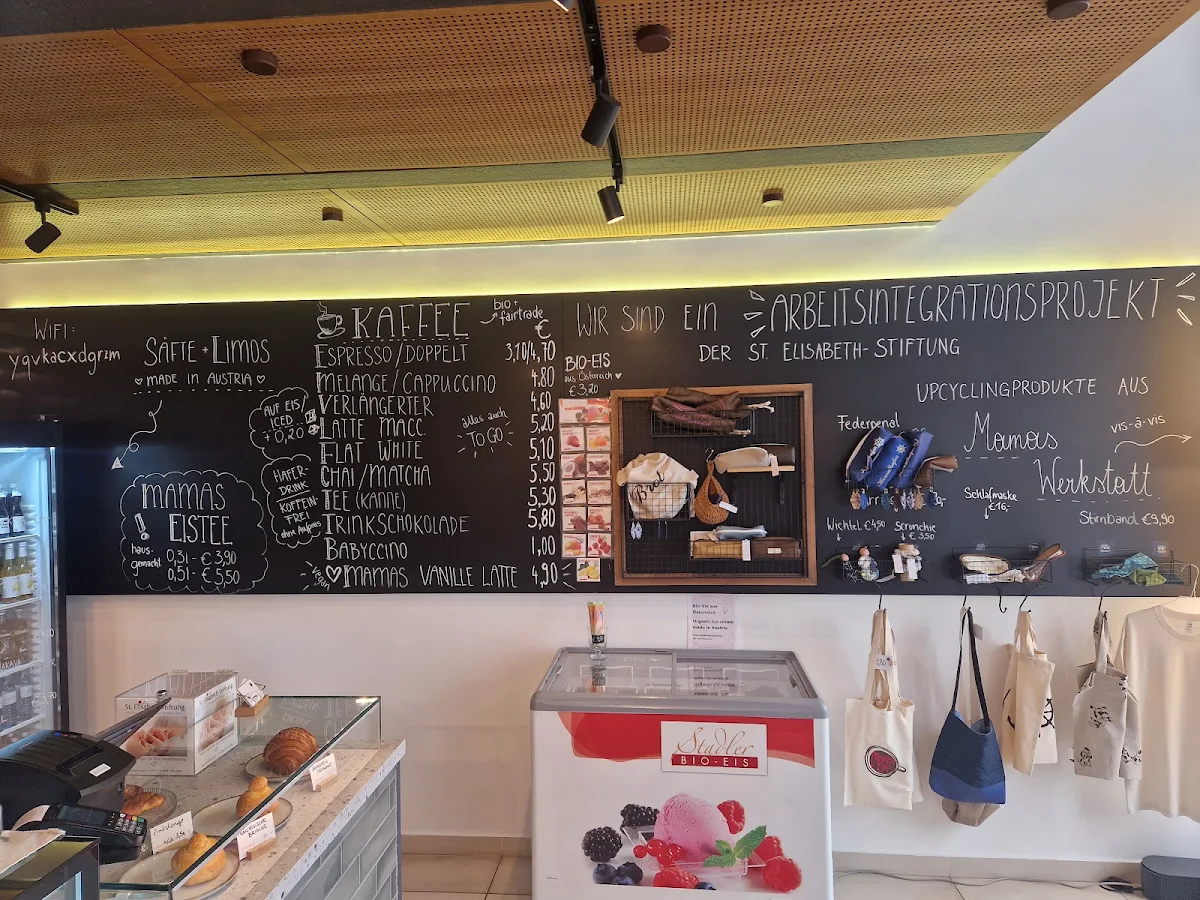 WIFI:
yqvkacxdgrzm
SÄFTE + LIMOS
♡ MADE IN AUSTRIA ♡
MAMAS
EISTEE
haus-
gemacht
0,3l - € 3,90
0,5l - € 5,50
AUF EIS/
ICED
+ 0,20
HAFER-
DRINK
KOFFEIN-
FREI
ohne Aufpreis
KAFFEE
bio +
fairtrade
€
ESPRESSO/DOPPELT 3,10/4,70
MELANGE/CAPPUCCINO 4,80
VERLÄNGERTER 4,60
LATTE MACC. 5,20
FLAT WHITE 5,10
CHAI/MATCHA 5,50
TEE (KANNE) 5,30
TRINKSCHOKOLADE 5,80
BABYCCINO 1,00
vegan ♡ MAMAS VANILLE LATTE 4,90
alles auch
TO GO
BIO-EIS
aus Österreich ♥
€ 3,20
WIR SIND EIN ARBEITSINTEGRATIONSPROJEKT
DER ST. ELISABETH-STIFTUNG
UPCYCLINGPRODUKTE AUS
Mamas
Werkstatt
vis-à-vis
Federpenal
Schlafmaske
€ 16,-
Stirnband € 9,90
Wichtel € 4,50
Scrunchie
€ 3,50
Brot
Bio-Eis aus
Österreich
Organic ice cream
made in Austria
Stadler
BIO-EIS
St. Elisabeth-Stiftung